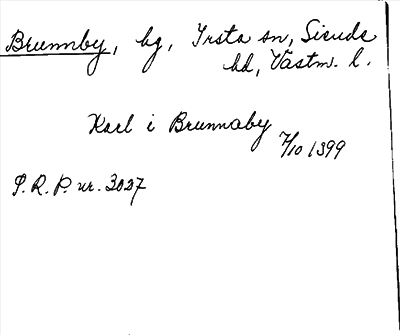 Brunnby, by, Irsta sn, Siende
hd, Västm. l.
Karl i Brunnaby
7/10 1399
P. R. P. nr. 3027